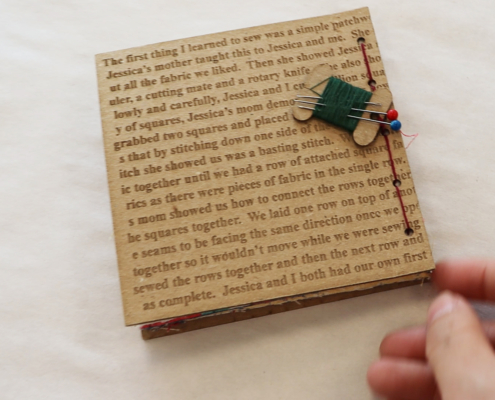 The first thing I learned to sew was a simple patchw
Jessica's mother taught this to Jessica and me. She
ut all the fabric we liked. Then she showed Jessica
uler, a cutting mate and a rotary knife. She also sho
lowly and carefully, Jessica and I c squa
y of squares, Jessica's mom demo
grabbed two squares and placed
s that by stitching down one side of
itch she showed us was a basting stitch.
ic together until we had a row of attached square fa
rics as there were pieces of fabric in the single row.
s mom showed us how to connect the rows together
he squares together. We laid one row on top of anot
e seams to be facing the same direction once we op
together so it wouldn't move while we were sewing
sewed the rows together and then the next row and
as complete. Jessica and I both had our own first